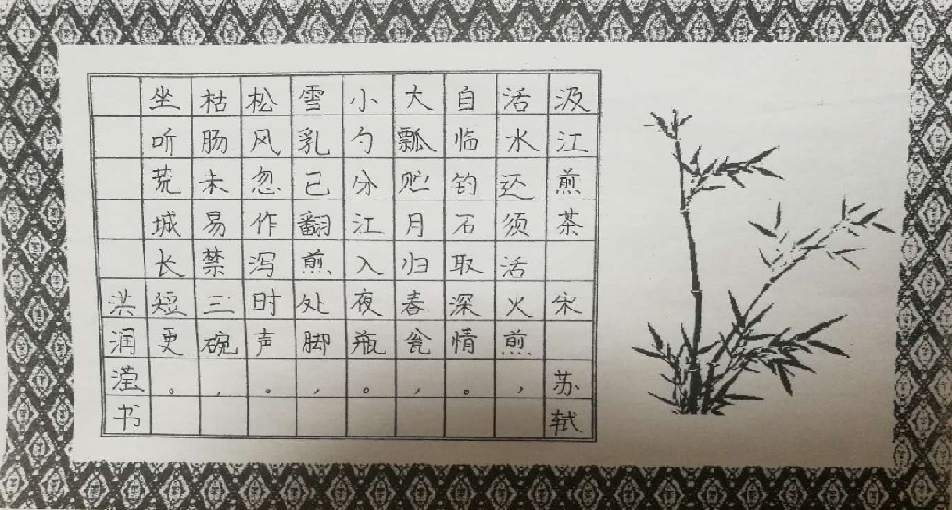 汲江煎茶 宋 苏轼
活水还须活火煎，
自临钓石取深情。
大瓢贮月归春瓮，
小勺分江入夜瓶。
雪乳已翻煎处脚，
松风忽作泻时声。
枯肠未易禁三碗，
坐听荒城长短更。
洪润滢书